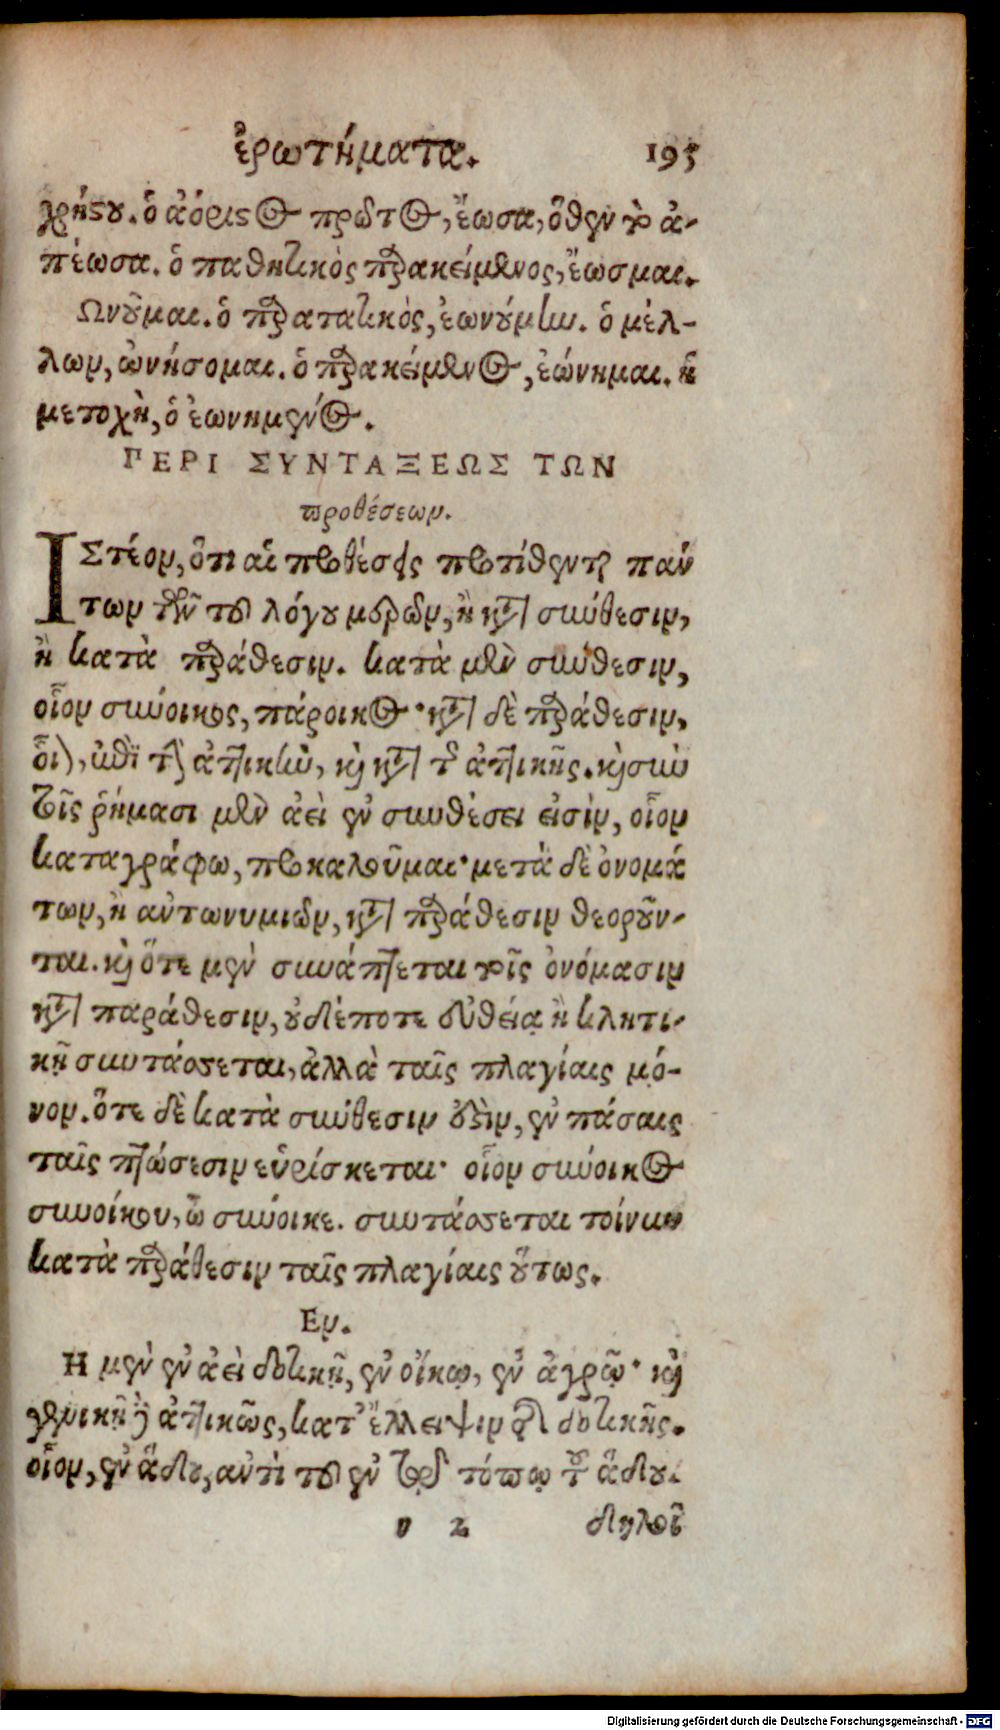 ἐρωτήματα. 195
χρήστου. ὁ ἀόριστος πρῶτος, ἔωσα, ὅθεν τὸ ἀ-
πέωσα. ὁ παθητικὸς παρακείμενος, ἔωσμαι.
Ωνοῦμαι. ὁ παρατατικὸς, ἐωνούμην. ὁ μέλ-
λων, ὠνήσομαι. ὁ παρακείμενος, ἐώνημαι. ἡ
μετοχὴ, ὁ ἐωνημένος.
ΠΕΡΙ ΣΥΝΤΑΞΕΩΣ ΤΩΝ
προθέσεων.
ΙΣτέον, ὅτι αἱ προθέσεις προτίθενται πάν
των τῶν τοῦ λόγου μερῶν, ἢ κατὰ σύνθεσιν,
ἢ κατὰ παράθεσιν. κατὰ μὲν σύνθεσιν,
οἷον σύνοικος, πάροικος· κατὰ δὲ παράθεσιν,
οἷον, περὶ τὴν ἀττικὴν, καὶ κατὰ τῆς ἀττικῆς. καὶ σὺν
τοῖς ῥήμασι μὲν ἀεὶ ἐν συνθέσει εἰσὶν, οἷον
καταγράφω, προκαλοῦμαι· μετὰ δὲ ὀνομά
των, ἢ αὐτωνυμιῶν, κατὰ παράθεσιν θεοροῦν-
ται. καὶ ὅτε μὲν συνάπτεται τοῖς ὀνόμασιν
κατὰ παράθεσιν, οὐδέποτε εὐθείᾳ ἢ κλητι-
κῇ συντάσσεται, ἀλλὰ ταῖς πλαγίαις μό-
νον. ὅτε δὲ κατὰ σύνθεσιν ἐστὶν, ἐν πάσαις
ταῖς πτώσεσιν εὑρίσκεται· οἷον σύνοικος
συνοίκου, ὦ σύνοικε. συντάσσεται τοίνυν
κατὰ παράθεσιν ταῖς πλαγίαις οὕτως.
Εν.
Η μὲν ἐν ἀεὶ δοτικῇ, ἐν οἴκῳ, ἐν ἀγρῷ· καὶ
γενικῇ δὲ ἀττικῶς, κατ' ἔλλειψιν τῆς δοτικῆς.
οἷον, ἐν ἅδου, αὐτὶ τοῦ ἐν τῷ τόπῳ τοῦ ἅδου.
υ 2 δηλοῖ
Digitalisierung gefördert durch die Deutsche Forschungsgemeinschaft - DFG